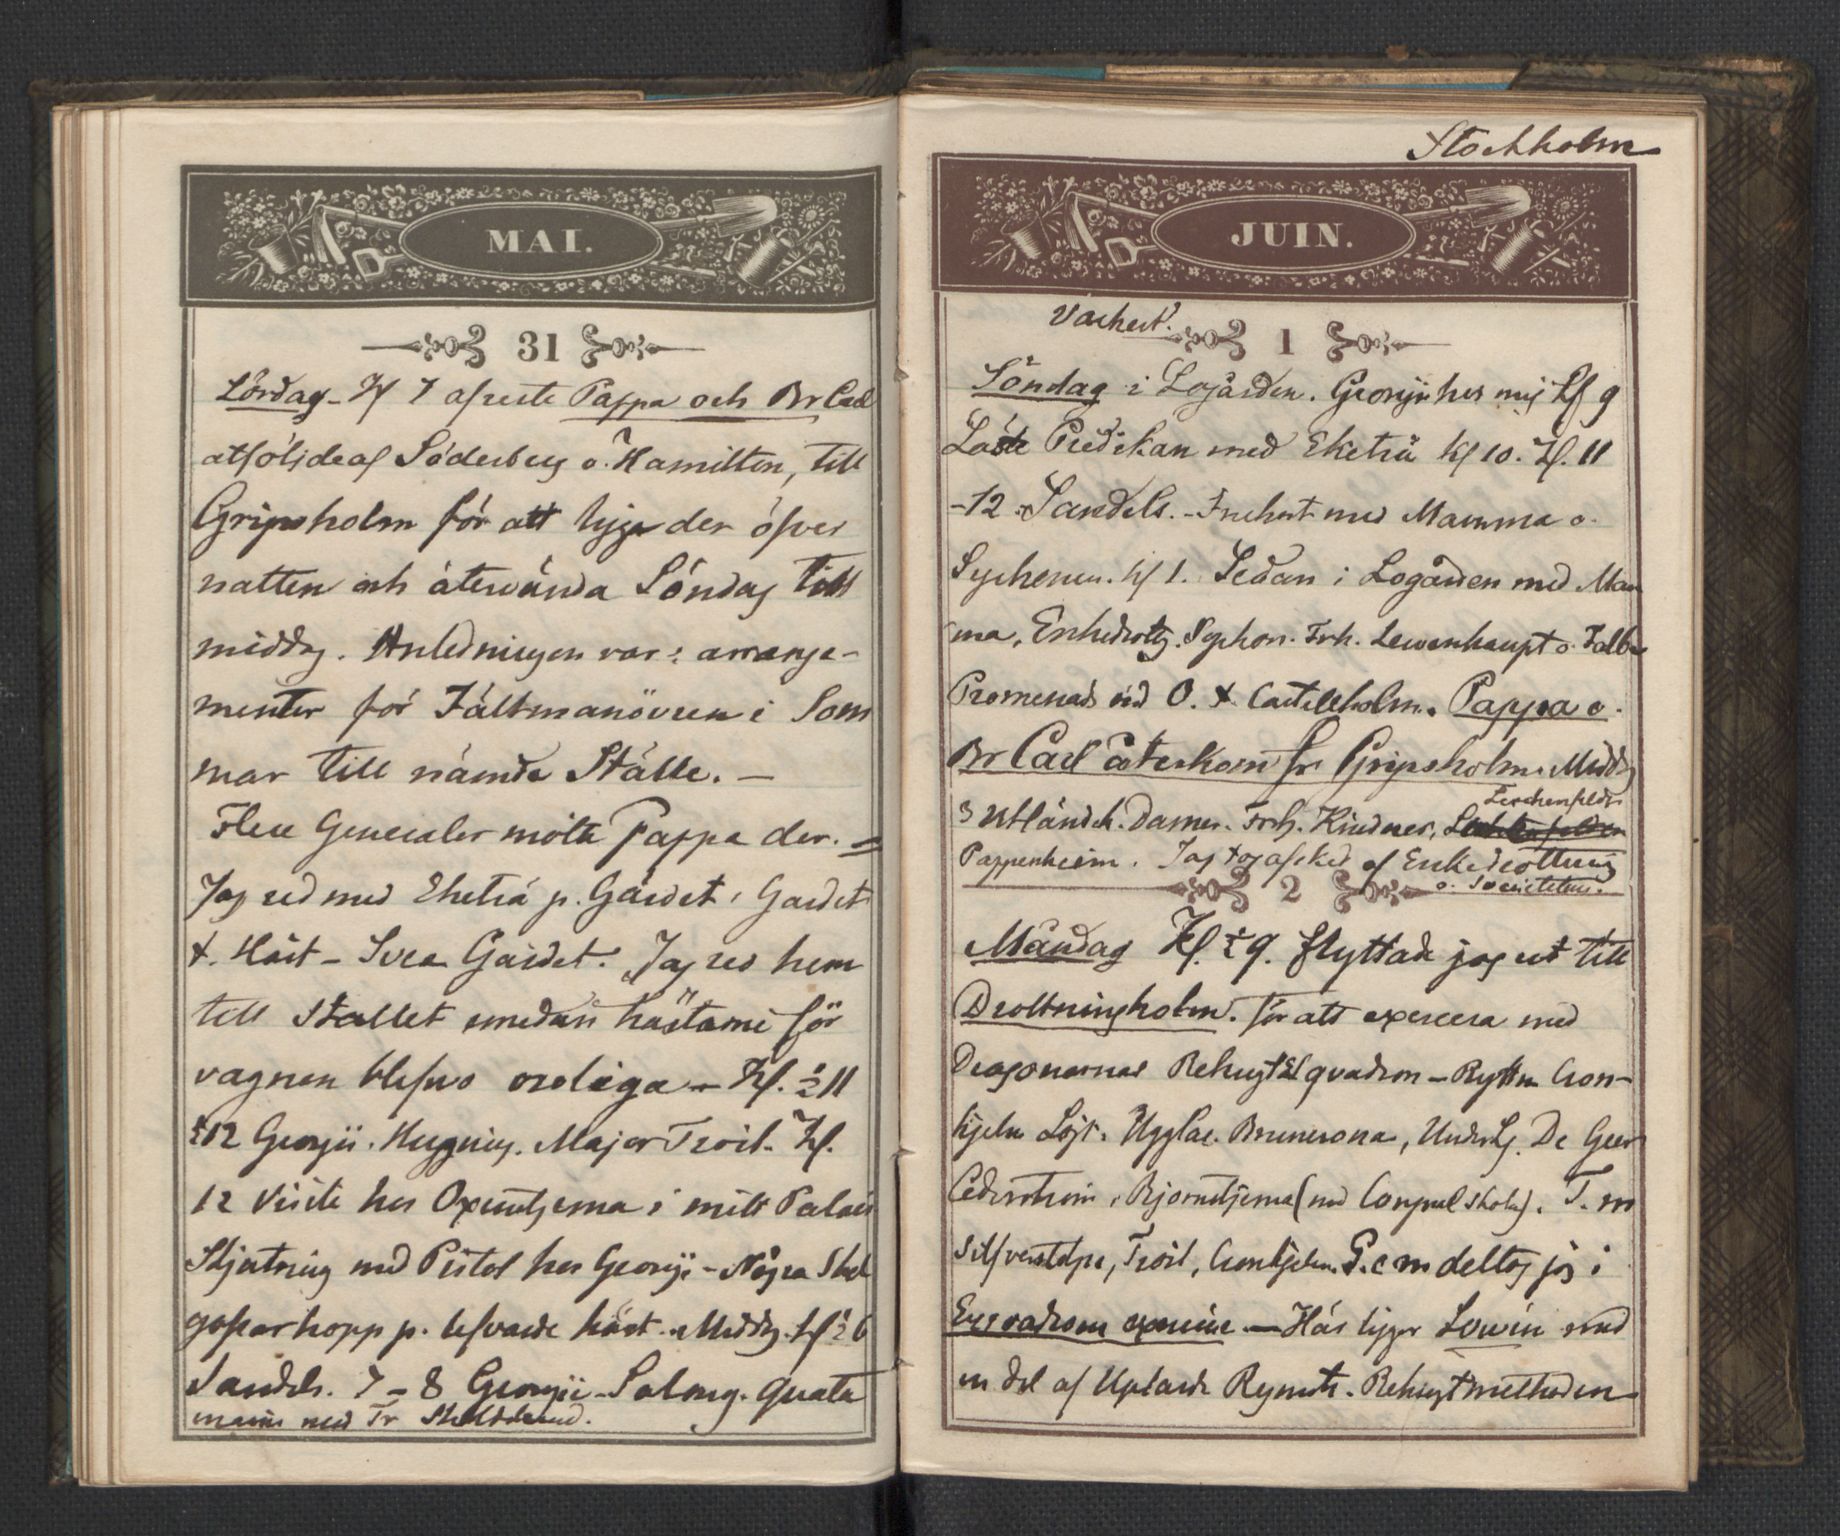 MAI.
31
Lördag - Kl 7 afreste Pappa och Br Carl
åtföljde af Söderberg o. Hamilton, till
Gripsholm för att ligga der öfver
natten och återvända Söndag till
middag. Anledningen var: arrange-
menter för Fältmanövren i Som
mar till nämde Ställe. -
Flere Generaler mötte Pappa der. =
Jag red med Eketrä p. Gärdet, Gardet
t. Häst - Svea Gardet. Jag red hem
till Stallet emedan hästarne för
vagnen blefvo oroliga - Kl. ½ 11
½ 12 Georgii. Major Troil. Kl.
12 Visite hos Oxenstjerna i mitt Palais
Skjutning med Pistol hos Georgii - Några Skol
gossar hopp p. lefvande häst. Middg. Kl ½ 6
Sandels. 7 - 8 Georgii - Salong. Quatre
mains med Fr Sköldebrand.
Stockholm
JUIN.
Vackert.
1
Söndag i Logården. Georgii hos mig Kl 9
Läste Predikan med Eketrä Kl 10. Kl. 11
-12 Sandels. - Frukost med Mamma o.
Syskonen. Kl 1. Sedan i Logården med Mam
ma, Enkedrottg. Syskon. Frh. Lewenhaupt o. Falbe
Promenad vid O. t. Castellholm. Pappa o.
Br Carl återkom fr Gripsholm. Middg
3 Utländsk. Damer. Frh. Krüdner, Lerchenfeldt
Pappenheim. Jag tog afsked af Enkedrottning
o. Societeten.
2
Måndag Kl. ½ 9. flyttade jag ut till
Drottningholm. för att exercera med
Dragonernas Rekryt Esquadron - Ryttm Cron-
hjelm Löjt. Ugglas. Brunerona, Underlj. De Geer
Cederström, Björnstjerna (med Corpral Skola). F. m
Silfverstolpe, Troil, Cronhjelm. E. m deltog jag i
Esqvadrons exercice - Här ligger Lovén med
en del af Uplands Rgmte. Rekrytmethoden